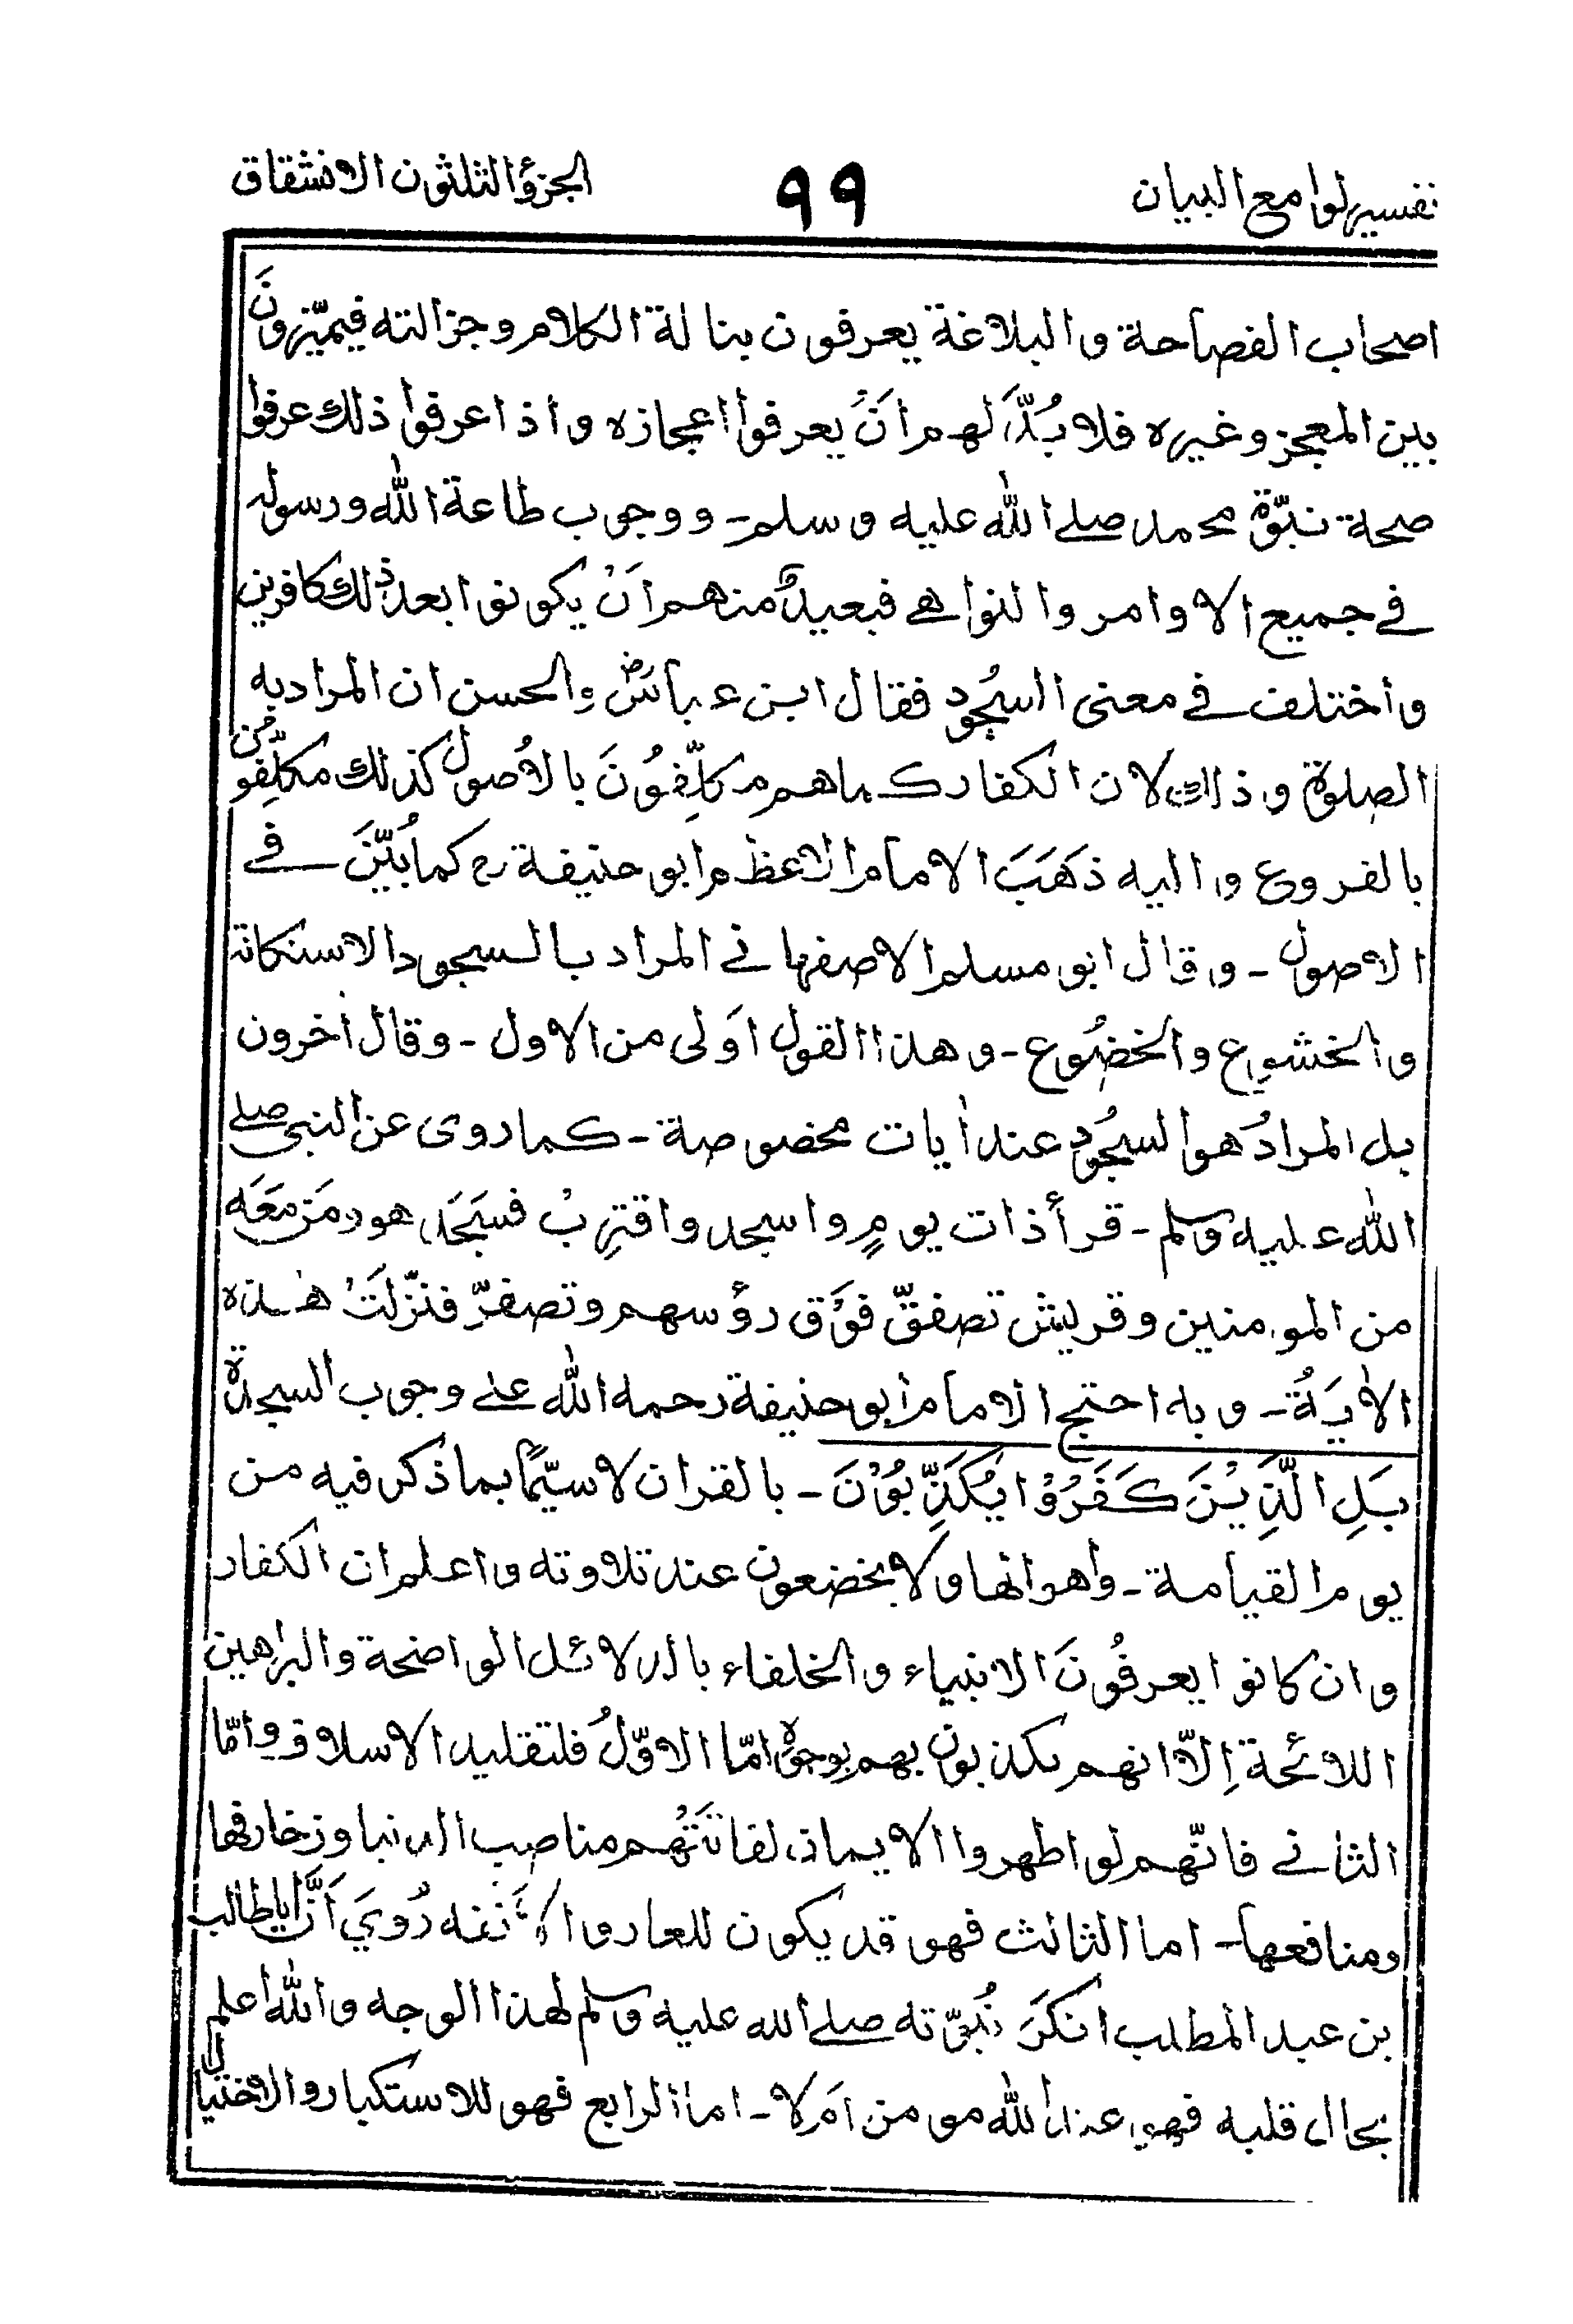 تفسير لوامع البيان
٩٩
الجزؤ الثلثون الانشقاق
اصحاب الفصاحة والبلاغة يعرفون بنالة الكلام وجزالته فيميّزونَ
بين المعجز وغيره فلا بُدَّ لهم اَنْ يعرفوا اعجازه واذا عرفوا ذلك عرفوا
صحة نبوّة محمد صلے الله عليه وسلم - ووجوب طاعة الله ورسوله
في جميع الاوامر والنواهے فبعيدٌ منهم اَنْ يكونوا بعد ذلك كافرين
واختلف في معنى السجُودِ فقال ابن عباسؓ والحسن ان المراد به
الصلوة وذلك لان الكفار كما هم مكلّفُونَ بالاُصول كذلك مكلّفُون
بالفروع واليه ذهَبَ الامام الاعظم ابو حنيفة رح كما بُيّنَ في
الاصول - وقال ابو مسلم الاصفهانے المراد بالسجود الاستكانة
والخشوع والخضُوع - وهذا القول اَولى من الاول - وقال اٰخرون
بل المرادُ هو السجُودِ عند اٰيات مخصوصة - كما روى عن النبي صلے
الله عليه وسلم - قرأ ذات يومٍ واسجد واقترِبْ فسَجَدَ هو ومَنْ معَه
من المومنين وقريش تصفقّ فَوْق رؤسهم وتصفرّ فنزّلَتْ هٰذه
الاٰيَةُ - وبه احتج الامام ابو حنيفة رحمه الله علے وجوب السجدة
بَلِ الَّذِيْنَ كَفَرُوْا يُكَذِّبُوْنَ - بالقران لا سيّمًا بما ذكر فيه من
يوم القيامة - واهوالها ولا يخضعون عند تلاوته واعلم ان الكفار
وان كانوا يعرفُونَ الانبياء والخلفاء بالدلائل الواضحة والبراهين
اللائحة اِلّا انهم يكذبون بهم بوجوهٍ امّا الاوّلُ فلتقليد الاسلاف وامّا
الثانے فانّهم لو اظهروا الايمان لفاتَتْهُم مناصب الدنيا وزخارفها
ومنافعها - اما الثالث فهو قد يكون للعار والاَنفه رُوِيَ اَنَّ ابا طالب
بن عبد المطلب انكَرَ نُبوّته صلے الله عليه وسلم لهذا الوجه والله اعلم
بحال قلبه فهو عند الله مومن اَم لا - اما الرابع فهو للاستكبار والاختيال